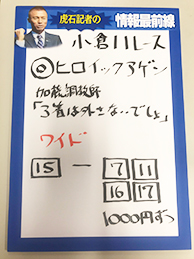 虎石記者の
情報最前線
小倉11レース
◎ヒロイックアゲン
加藤調教師
「3着は外さないでしょ」
ワイド
15 ー 7 11
16 17
1000円ずつ